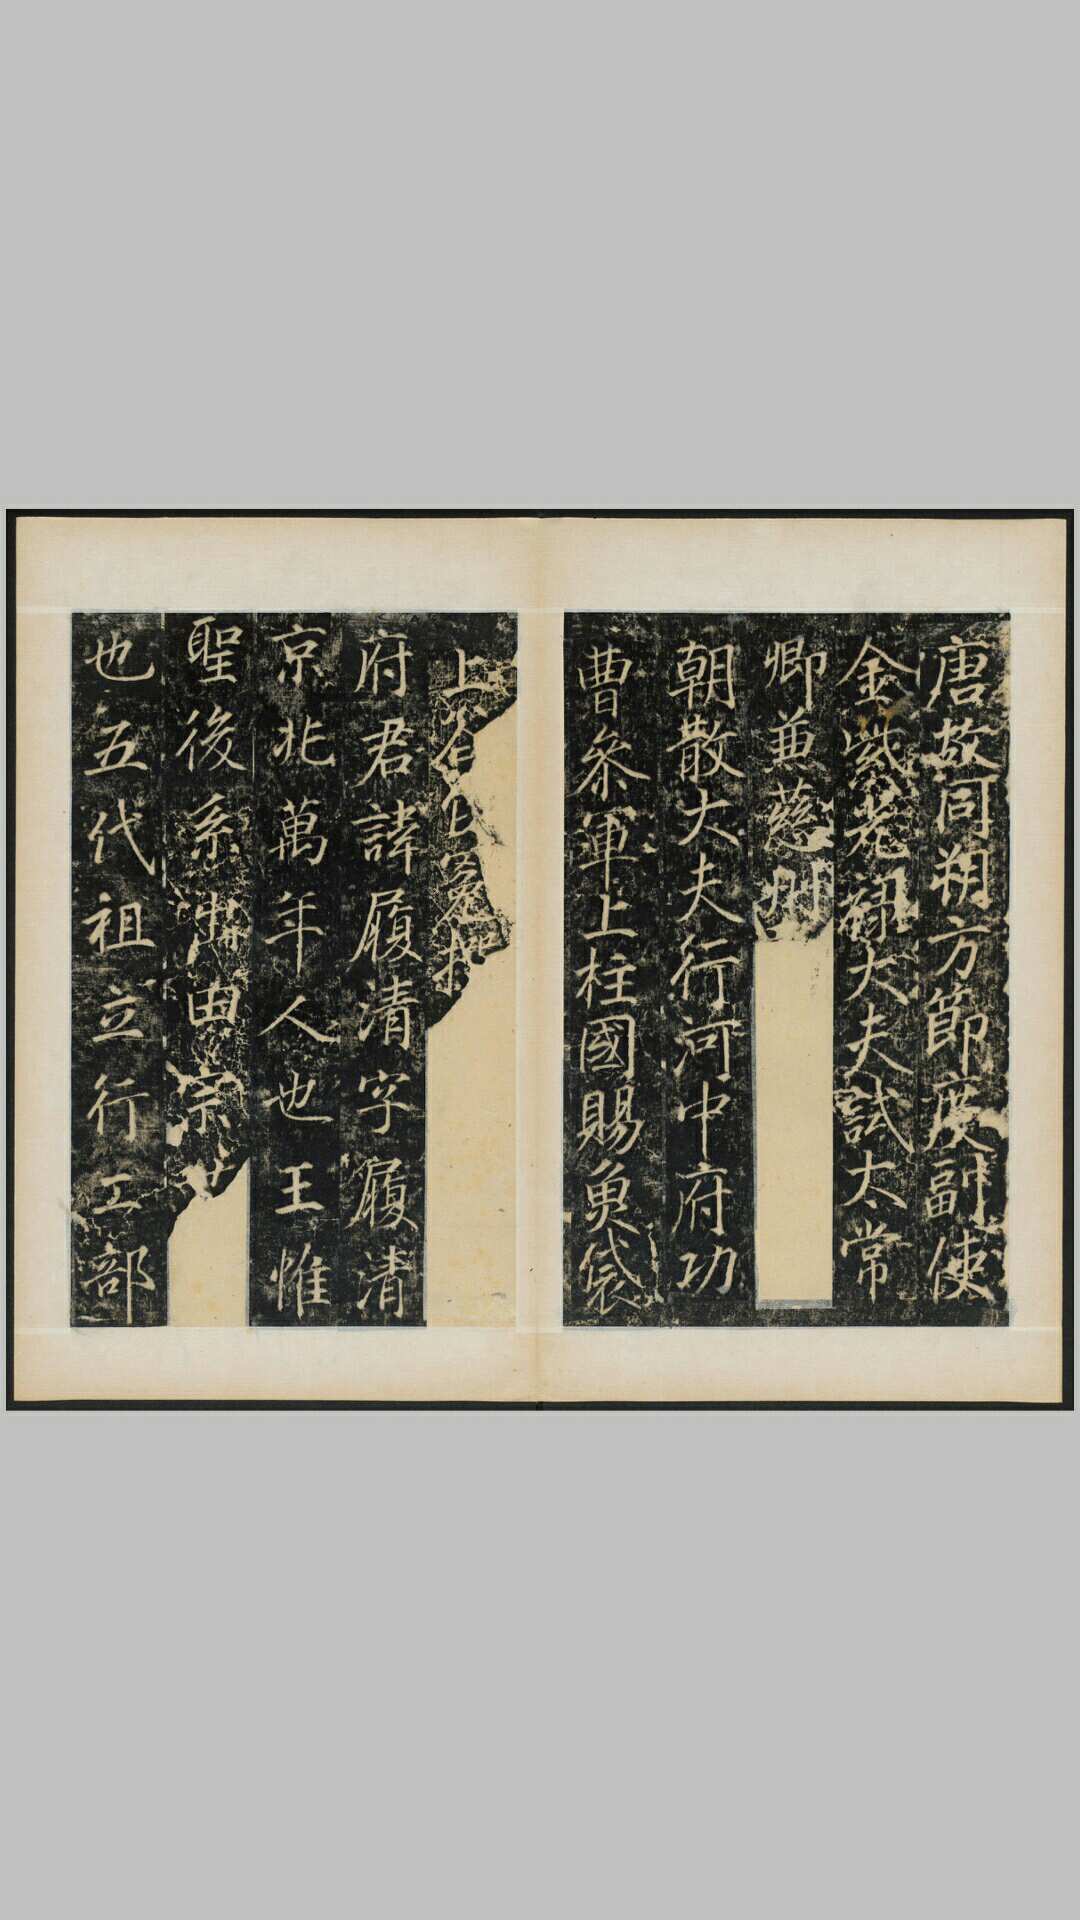 唐故同朔方節度副使
金紫光祿大夫試太常
卿並慈州
朝散大夫行河中府功
曹參軍上柱國賜魚袋
上
府君諱履清字履清
京兆萬年人也王惟
聖後系出由宗
也五代祖立行工部